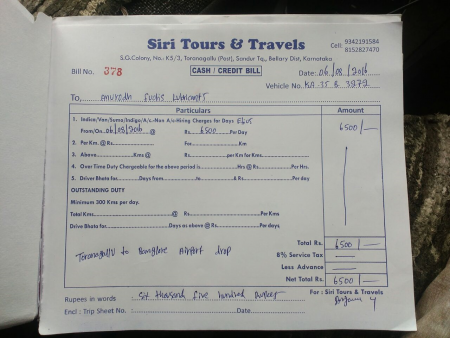 Siri Tours & Travels
Cell: 9342191584
8152827470
S.G.Colony, No.: K5/3, Toranagallu (Post), Sandur Tq., Bellary Dist, Karnataka
Bill No. 378
CASH / CREDIT BILL
Date: 06/08/2016
Vehicle No. KA 35 B 3972
To,
Particulars Amount
1. Indica/Van/Sumo/Indigo/A/c-Non A/c-Hiring Charges for Days
From/On 06/08/2016 @ Rs 6500 Per Day 6500/-
2. Per Km. @ Rs. For Km.
3. Above Kms @ Rs per Km for Kms
4. Over Time Duty Chargeable for the above period is Hrs @ Rs Per Hrs.
5. Driver Bhata for Days from to 6 Rs Per day
OUTSTANDING DUTY
Minimum 300 Kms per day.
Total Kms @ Rs. Per Kms
Drive Bhata for Days as above @ Rs per Days.
Toranagallu to Banglore Airport drop
Total Rs. 6500/-
8% Service Tax
Less Advance
Net Total Rs. 6500/-
Rupees in words Six thousand five hundred
For : Siri Tours & Travels
Encl : Trip Sheet No. : Date